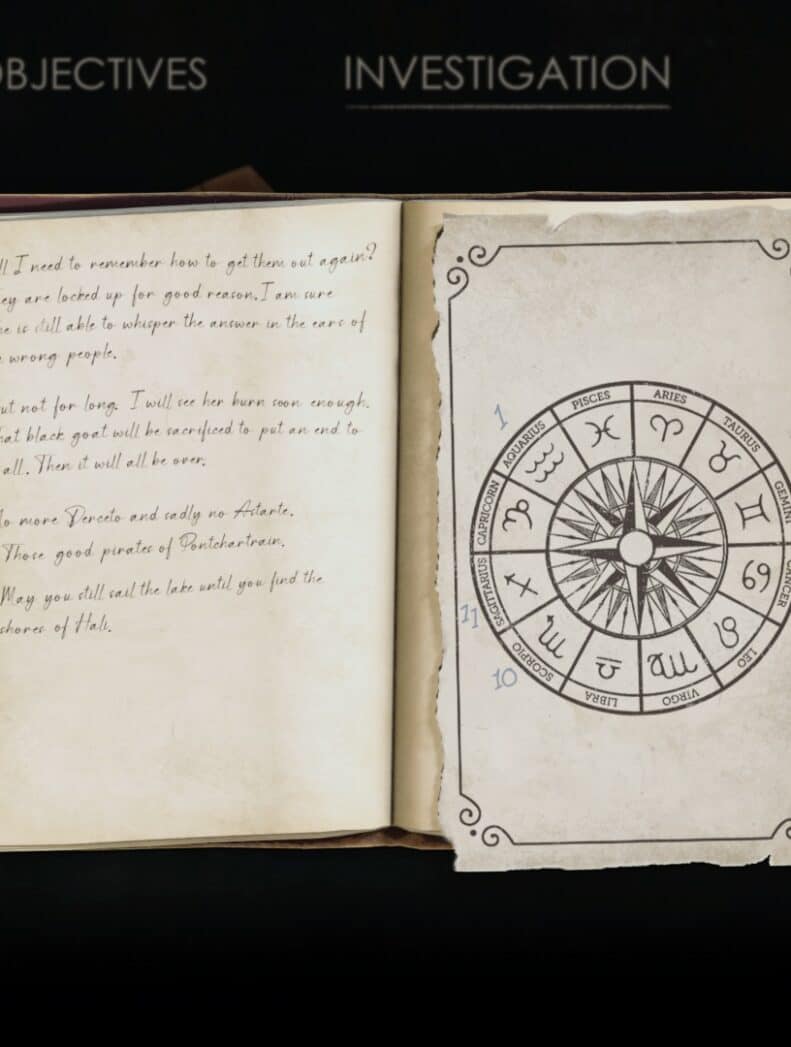 OBJECTIVES
INVESTIGATION
I need to remember how to get them out again?
are locked up for good reason. I am sure
is still able to whisper the answer in the ears of
wrong people.
not for long. I will see her burn soon enough.
black goat will be sacrificed to put an end to
all. Then it will all be over.
more Derceto and sadly no Astarte.
Those good pirates of Pontchartrain.
May you still sail the lake until you find the
shores of Hali.
1
PISCES
ARIES
TAURUS
GEMINI
CANCER
LEO
VIRGO
LIBRA
SCORPIO
SAGITTARIUS
CAPRICORN
AQUARIUS
11
10